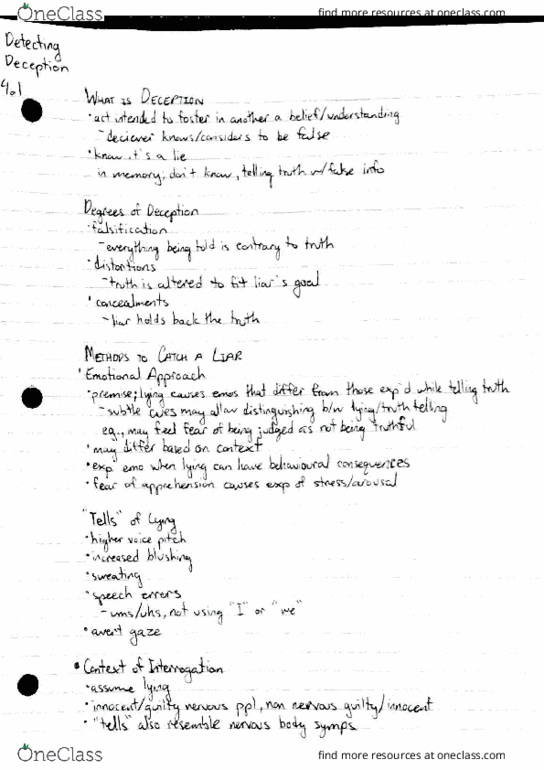 OneClass
find more resources at oneclass.com
Detecting
Deception
4.1
WHAT IS DECEPTION
• act intended to foster in another a belief/understanding
- deciever knows/considers to be false
• know it's a lie
in memory; don't know, telling truth w/ false info
Degrees of Deception
• falsification
- everything being told is contrary to truth
• distortions
- truth is altered to fit liar's goal
• concealments
- liar holds back the truth
METHODS TO CATCH A LIAR
• Emotional Approach
• premise; lying causes emos that differ from those exp'd while telling truth
- subtle cues may allow distinguishing b/w lying/truth telling
eg., may feel fear of being judged as not being truthful
• may differ based on context
• exp emo when lying can have behavioural consequences
• fear of apprehension causes exp of stress/arousal
"Tells" of Lying
• higher voice pitch
• increased blushing
• sweating
• speech errors
- ums/uhs, not using "I" or "we"
• avert gaze
• Context of Interrogation
• assume lying
• innocent/guilty nervous ppl, non nervous guilty/innocent
• "tells" also resemble nervous body symps
OneClass
find more resources at oneclass.com